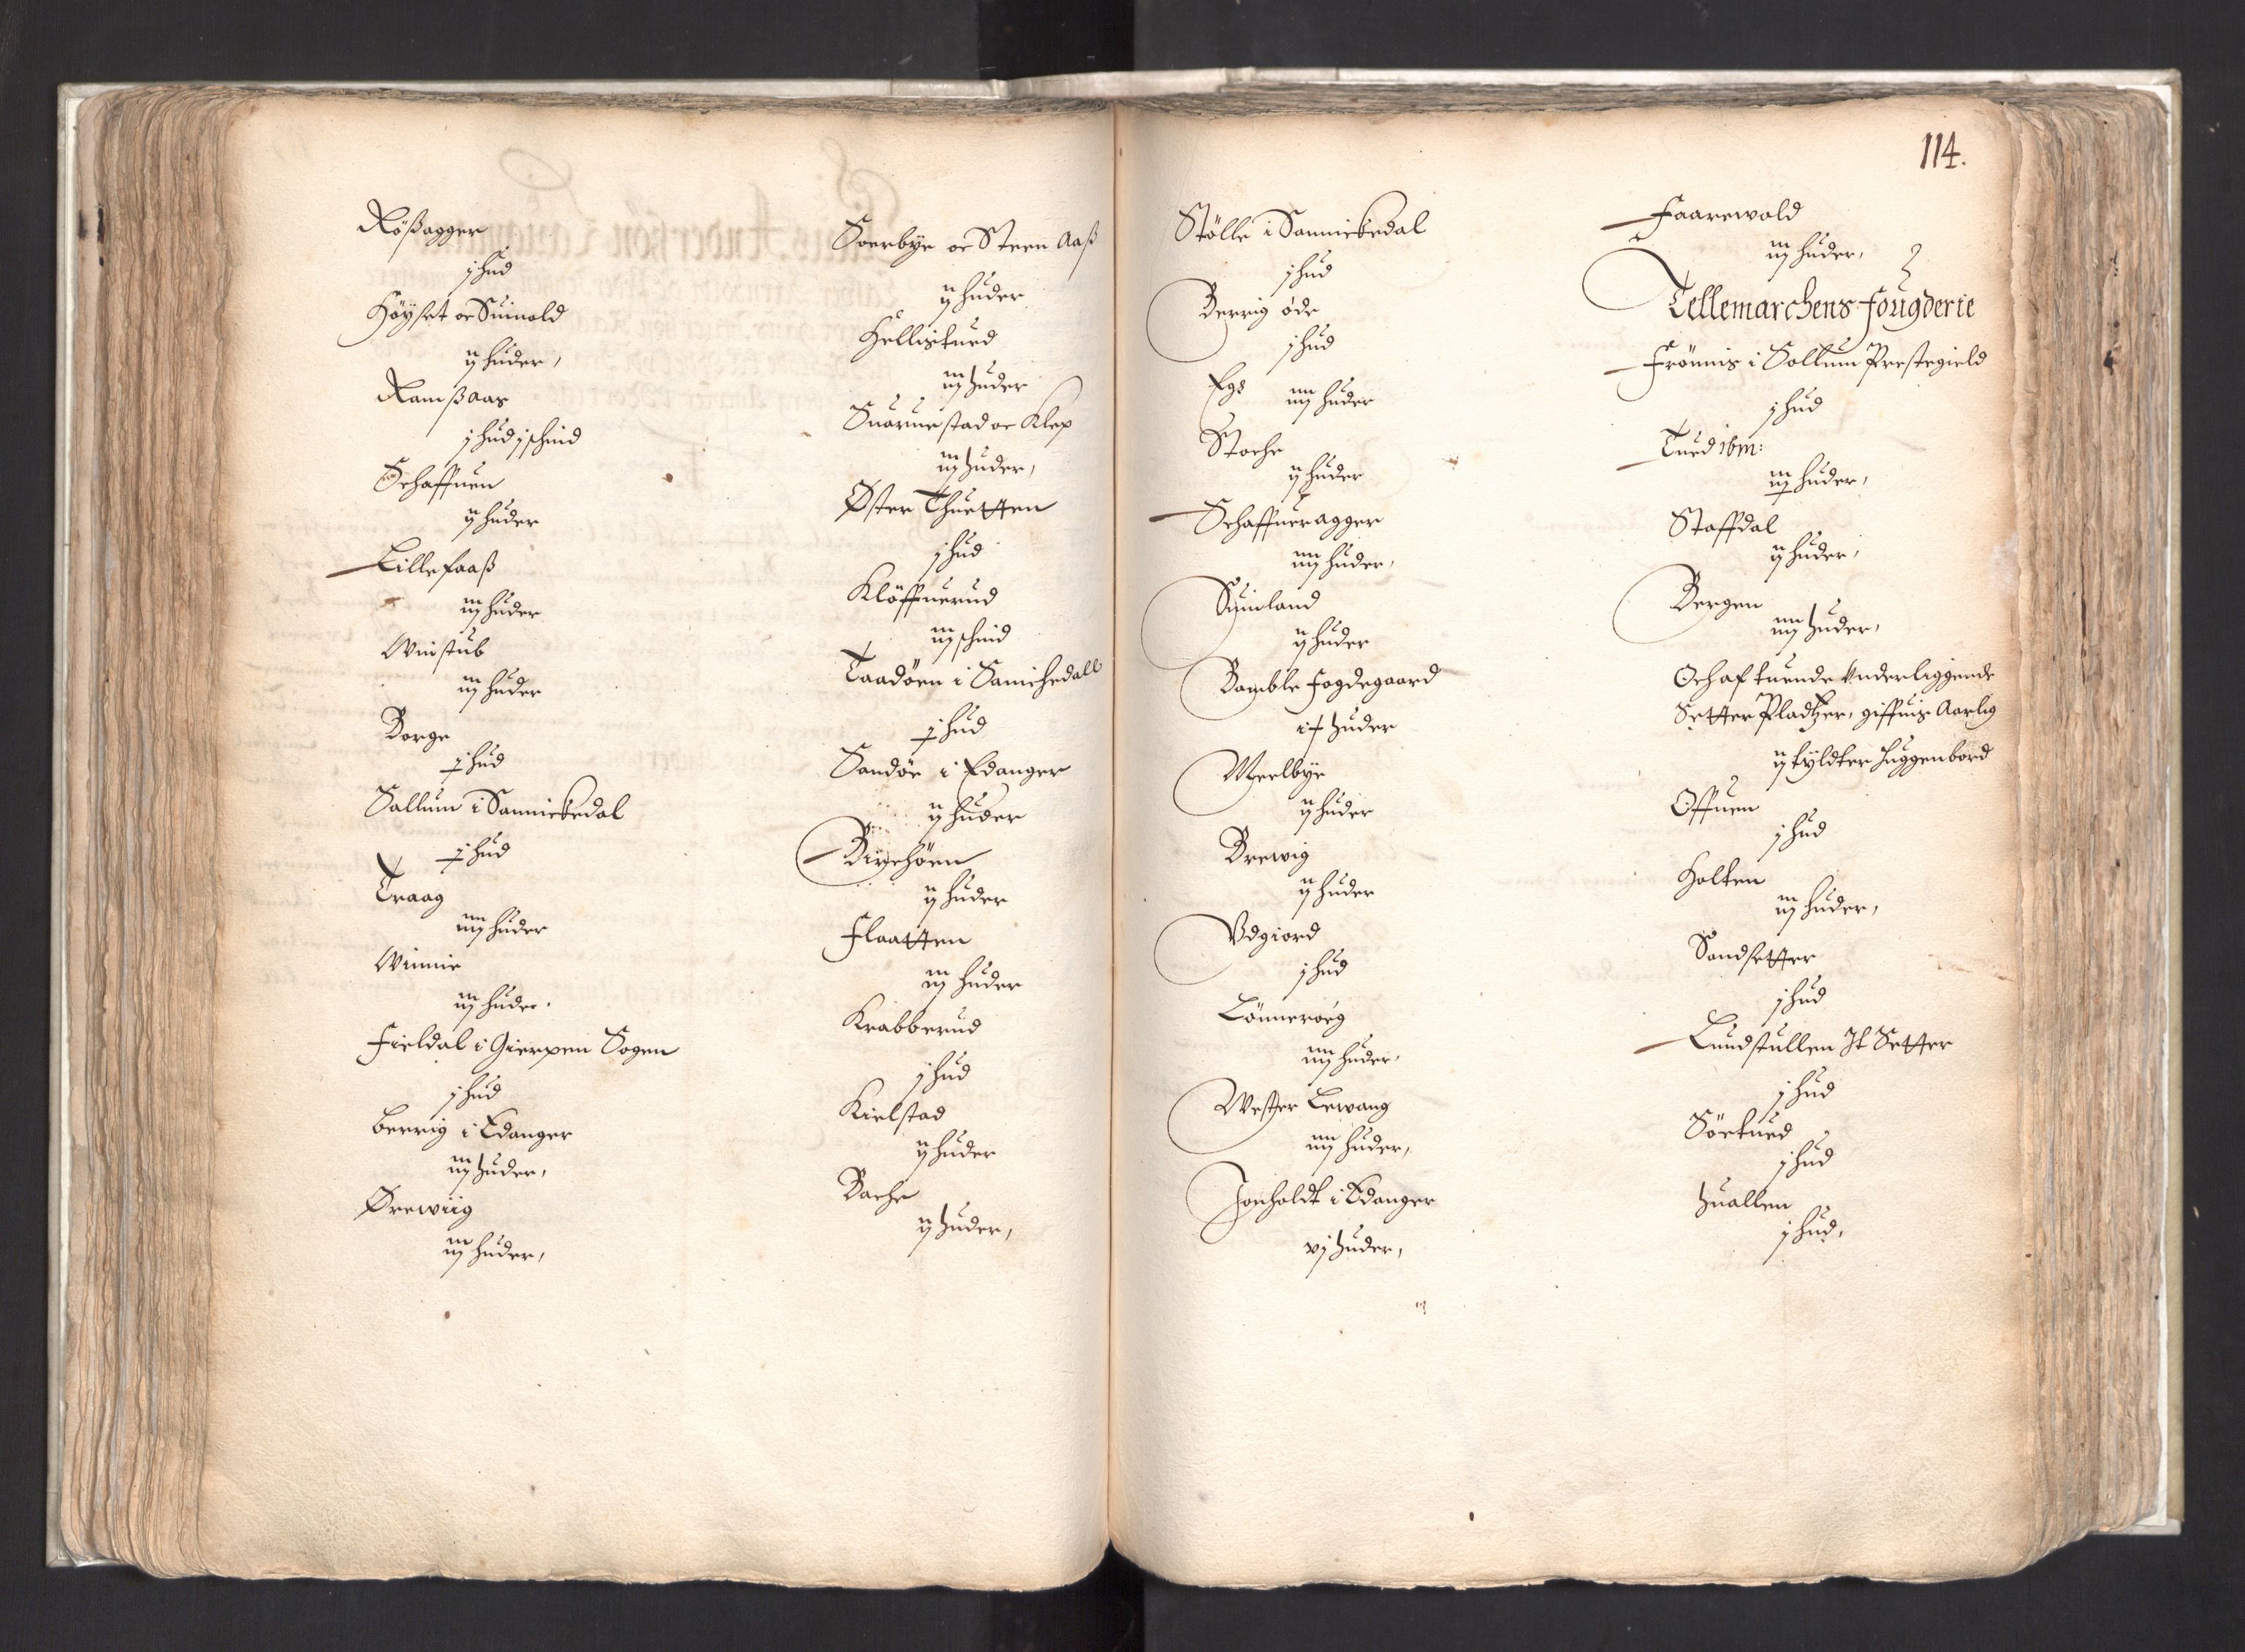 Rößagger
j hud
Höyset oc Suinold
ij huder,
Ramßaas
j hud j schind
Schaffuen
ij huder
Lillefaaß
iij huder
Winstub
iij huder
Borge
j hud
Sallum i Sannickedal
j hud
Traag
iiij huder
Winnie
iij huder.
Fieldal i Gierpen Sogen
j hud
Berrig i Edanger
iij huder,
Ørewiig
iij huder,
Soerbye oc Steen Aaß
ij huder
Hellistued
iij huder
Snarumstad oc Klep
iij huder,
Øster Thuetten
j hud
Klöffuerud
iij schind
Taadöen i Sanichedall
j hud
Sandöe i Edanger
ij huder
Birchöen
ij huder
Flaatten
iij huder
Krabberud
j hud
Kielstad
ij huder
Bache
ij huder,
114.
Stölle i Sannickedal
j hud
Berrig øde
j hud
Ege
iiij huder
Stoche
ij huder
Schaffueragger
iiij huder,
Suinland
ij huder
Bamble fogdegaard
huder
Meelbye
ij huder
Brewig
ij huder
Vdgiord
j hud
Lönneroeg
iiij huder,
Wester Lewang
iiij huder,
Jonholdt i Edanger
vj huder,
Faarewald
iij huder,
Tellemarchens fougderie
Frönnis i Sollum Prestegield
j hud
Tued ibm:
huder,
Staffdal
ij huder,
Bergen
iiij huder,
Och af tuende Vnderliggende
Setter Pladtzer, giffuis Aarlig
ij tyldter huggenbord
Offuen
j hud
Holten
iij huder,
Sandsetter
j hud
Lundstullen It Setter
j hud
Sörtued
j hud
Huallen
j hud,